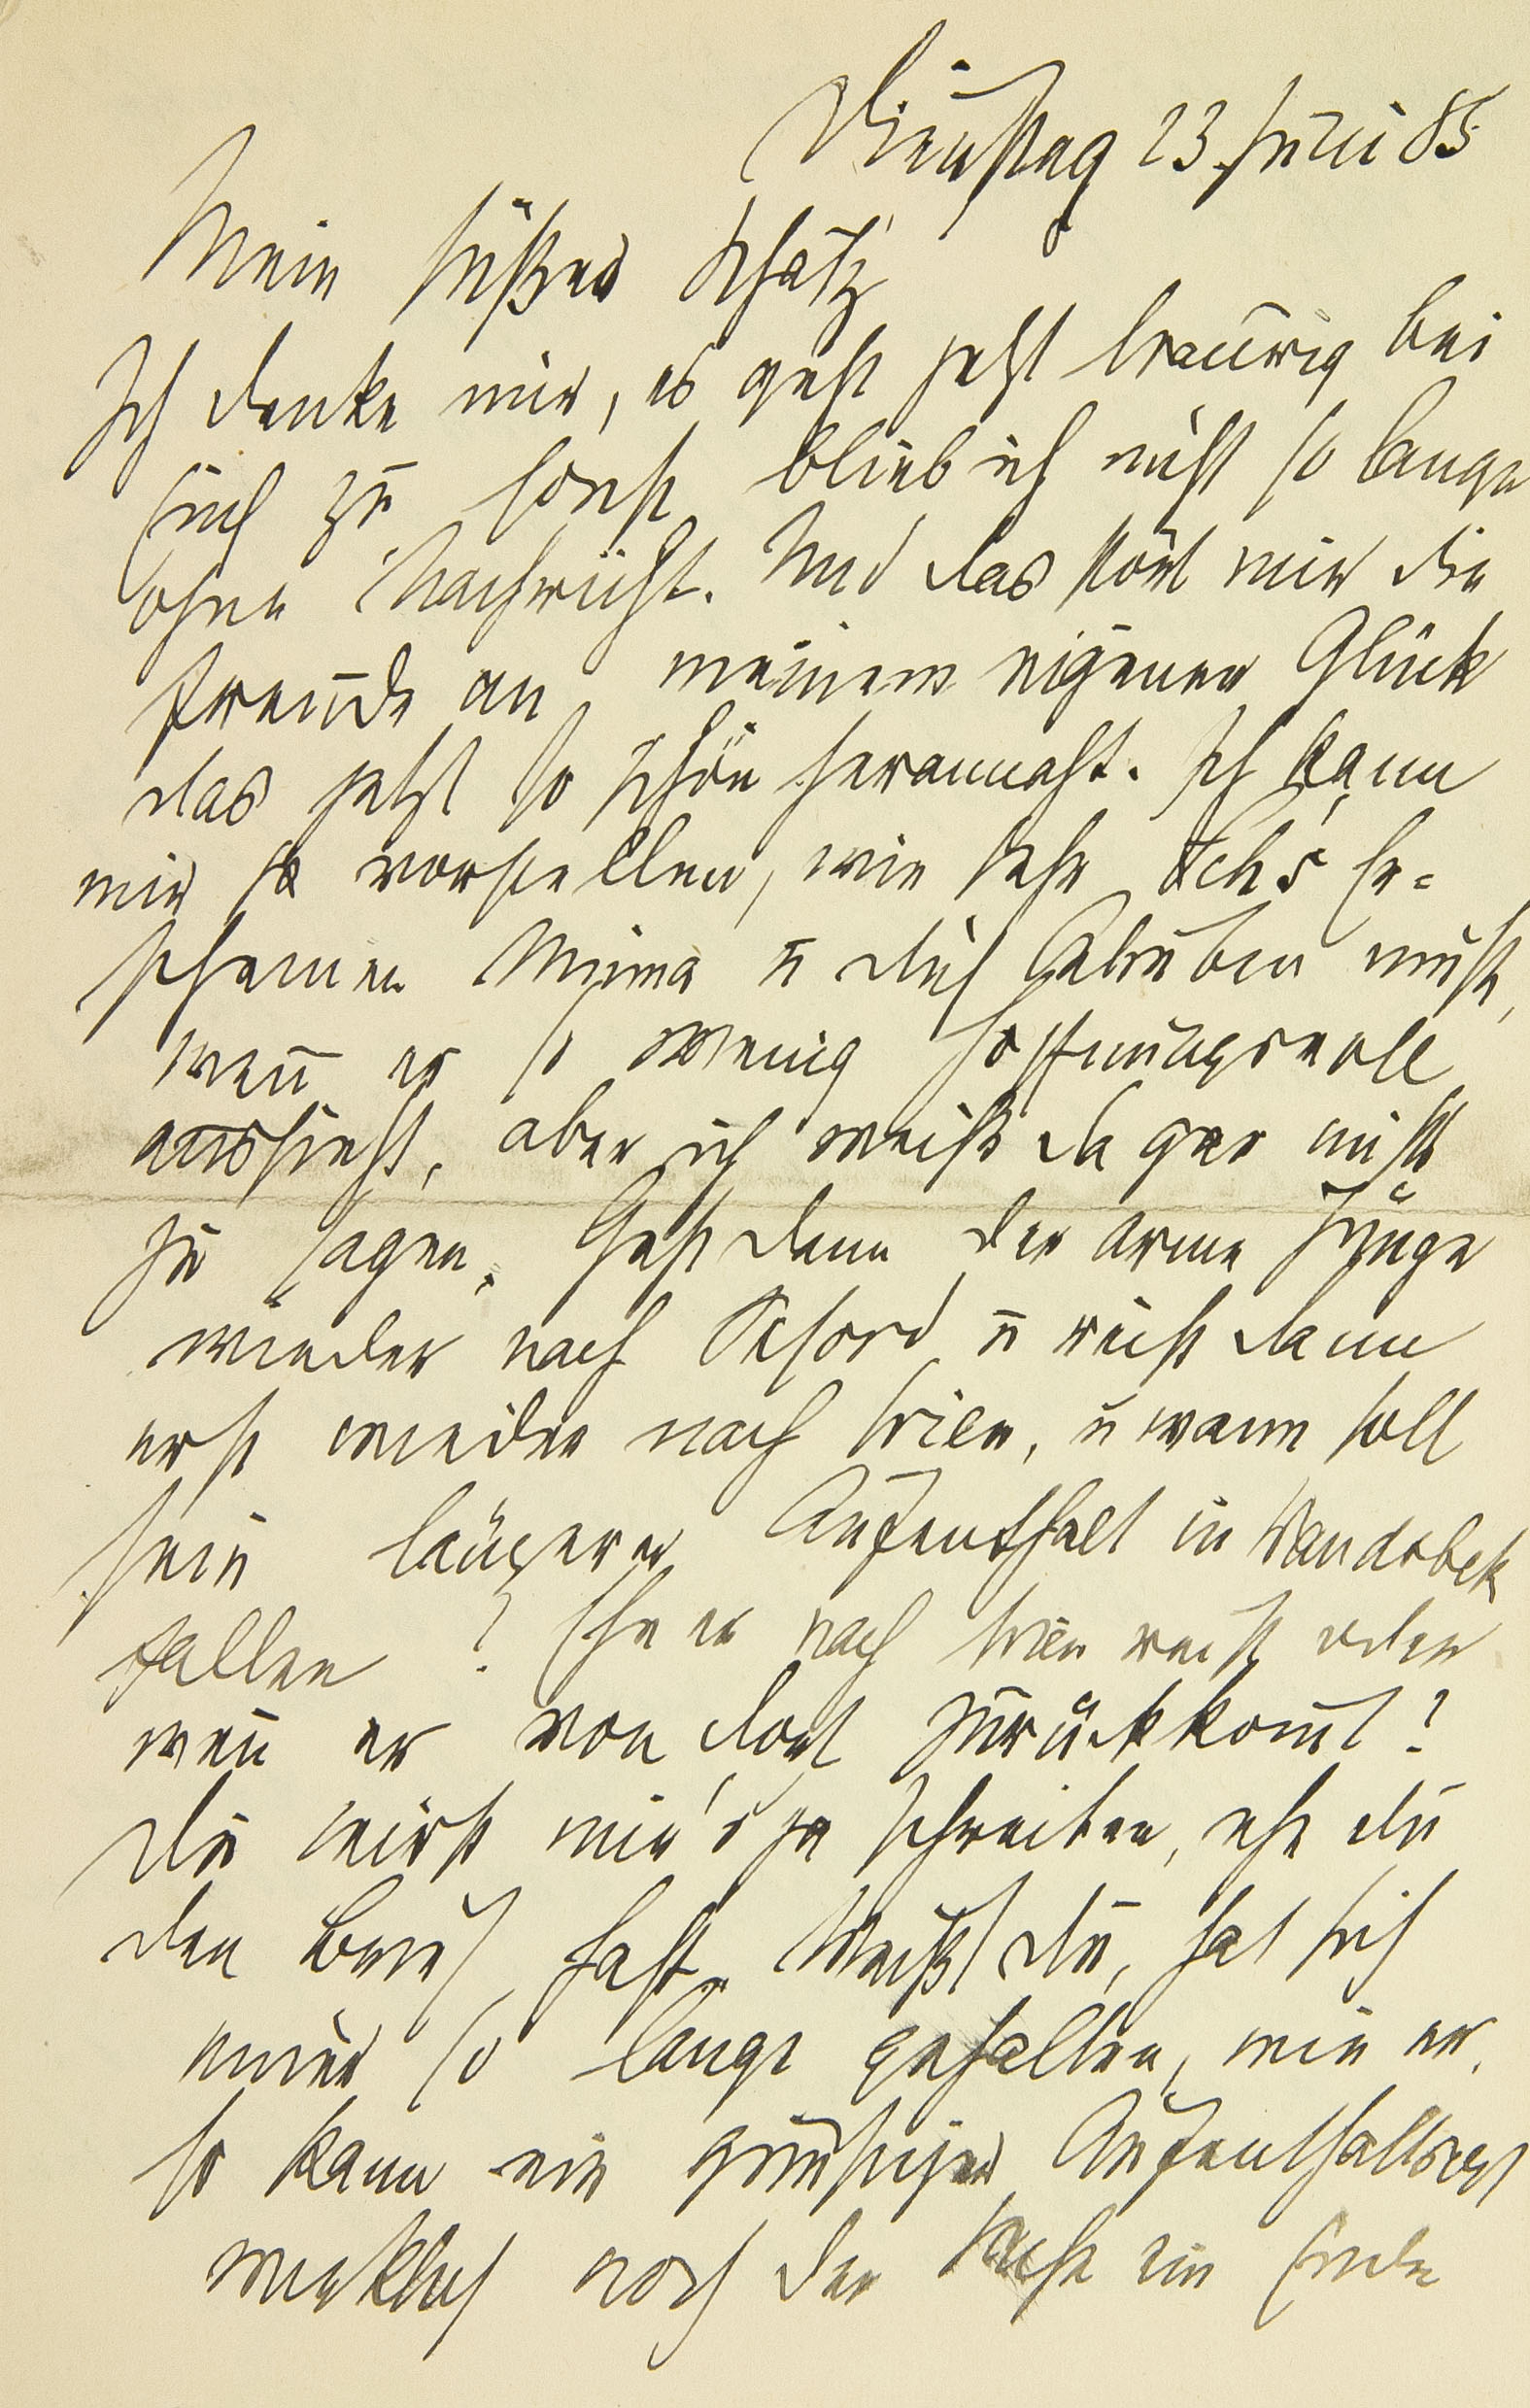 Dienstag 23. Juni 85
Mein süßer Schatz
Ich denke mir, es geht jetzt traurig bei
Euch zu sonst blieb ich nicht so lange
ohne Nachricht. Und das stört mir die
Freude an meinem eigenen Glück
das jetzt so schön herannaht. Ich kann
mir ja vorstellen, wie sehr Ichs Er=
scheinen Minna u dich betrüben muß,
wenn̄ er so wenig hoffnungsvoll
aussieht, aber ich weiß da gar nichts
zu sagen. Geht denn der arme Junge
wieder nach u reist dann
erst wieder nach Wien, u wann soll
sein längerer Aufenthalt in Wandsbek
fallen? Ehe er nach Wien reist oder
wen̄ er von dort zurückkom̄t?
Du wirst mir's ja schreiben, ehe du
den Brief hast. Weißt du, hat sich
einer so lange gehalten, wie er,
so kann ein günstiger Aufenthaltsort
wirklich noch der Sache ein Ende